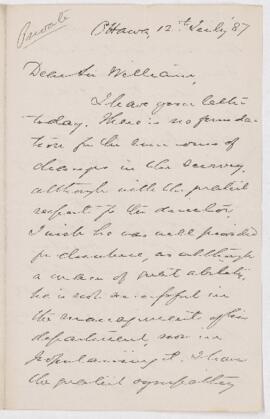 Private
Ottawa, 12th July '87
Dear Sir William,
I have your letter
today. There is no founda-
tion for the rumours of
changes in the Survey,
although with the greatest
respect to the director,
I wish he was well provided
for elsewhere, as although
a man of great ability,
he is not successful in
the management of his
department, nor in
popularising it. I have
the greatest sympathy